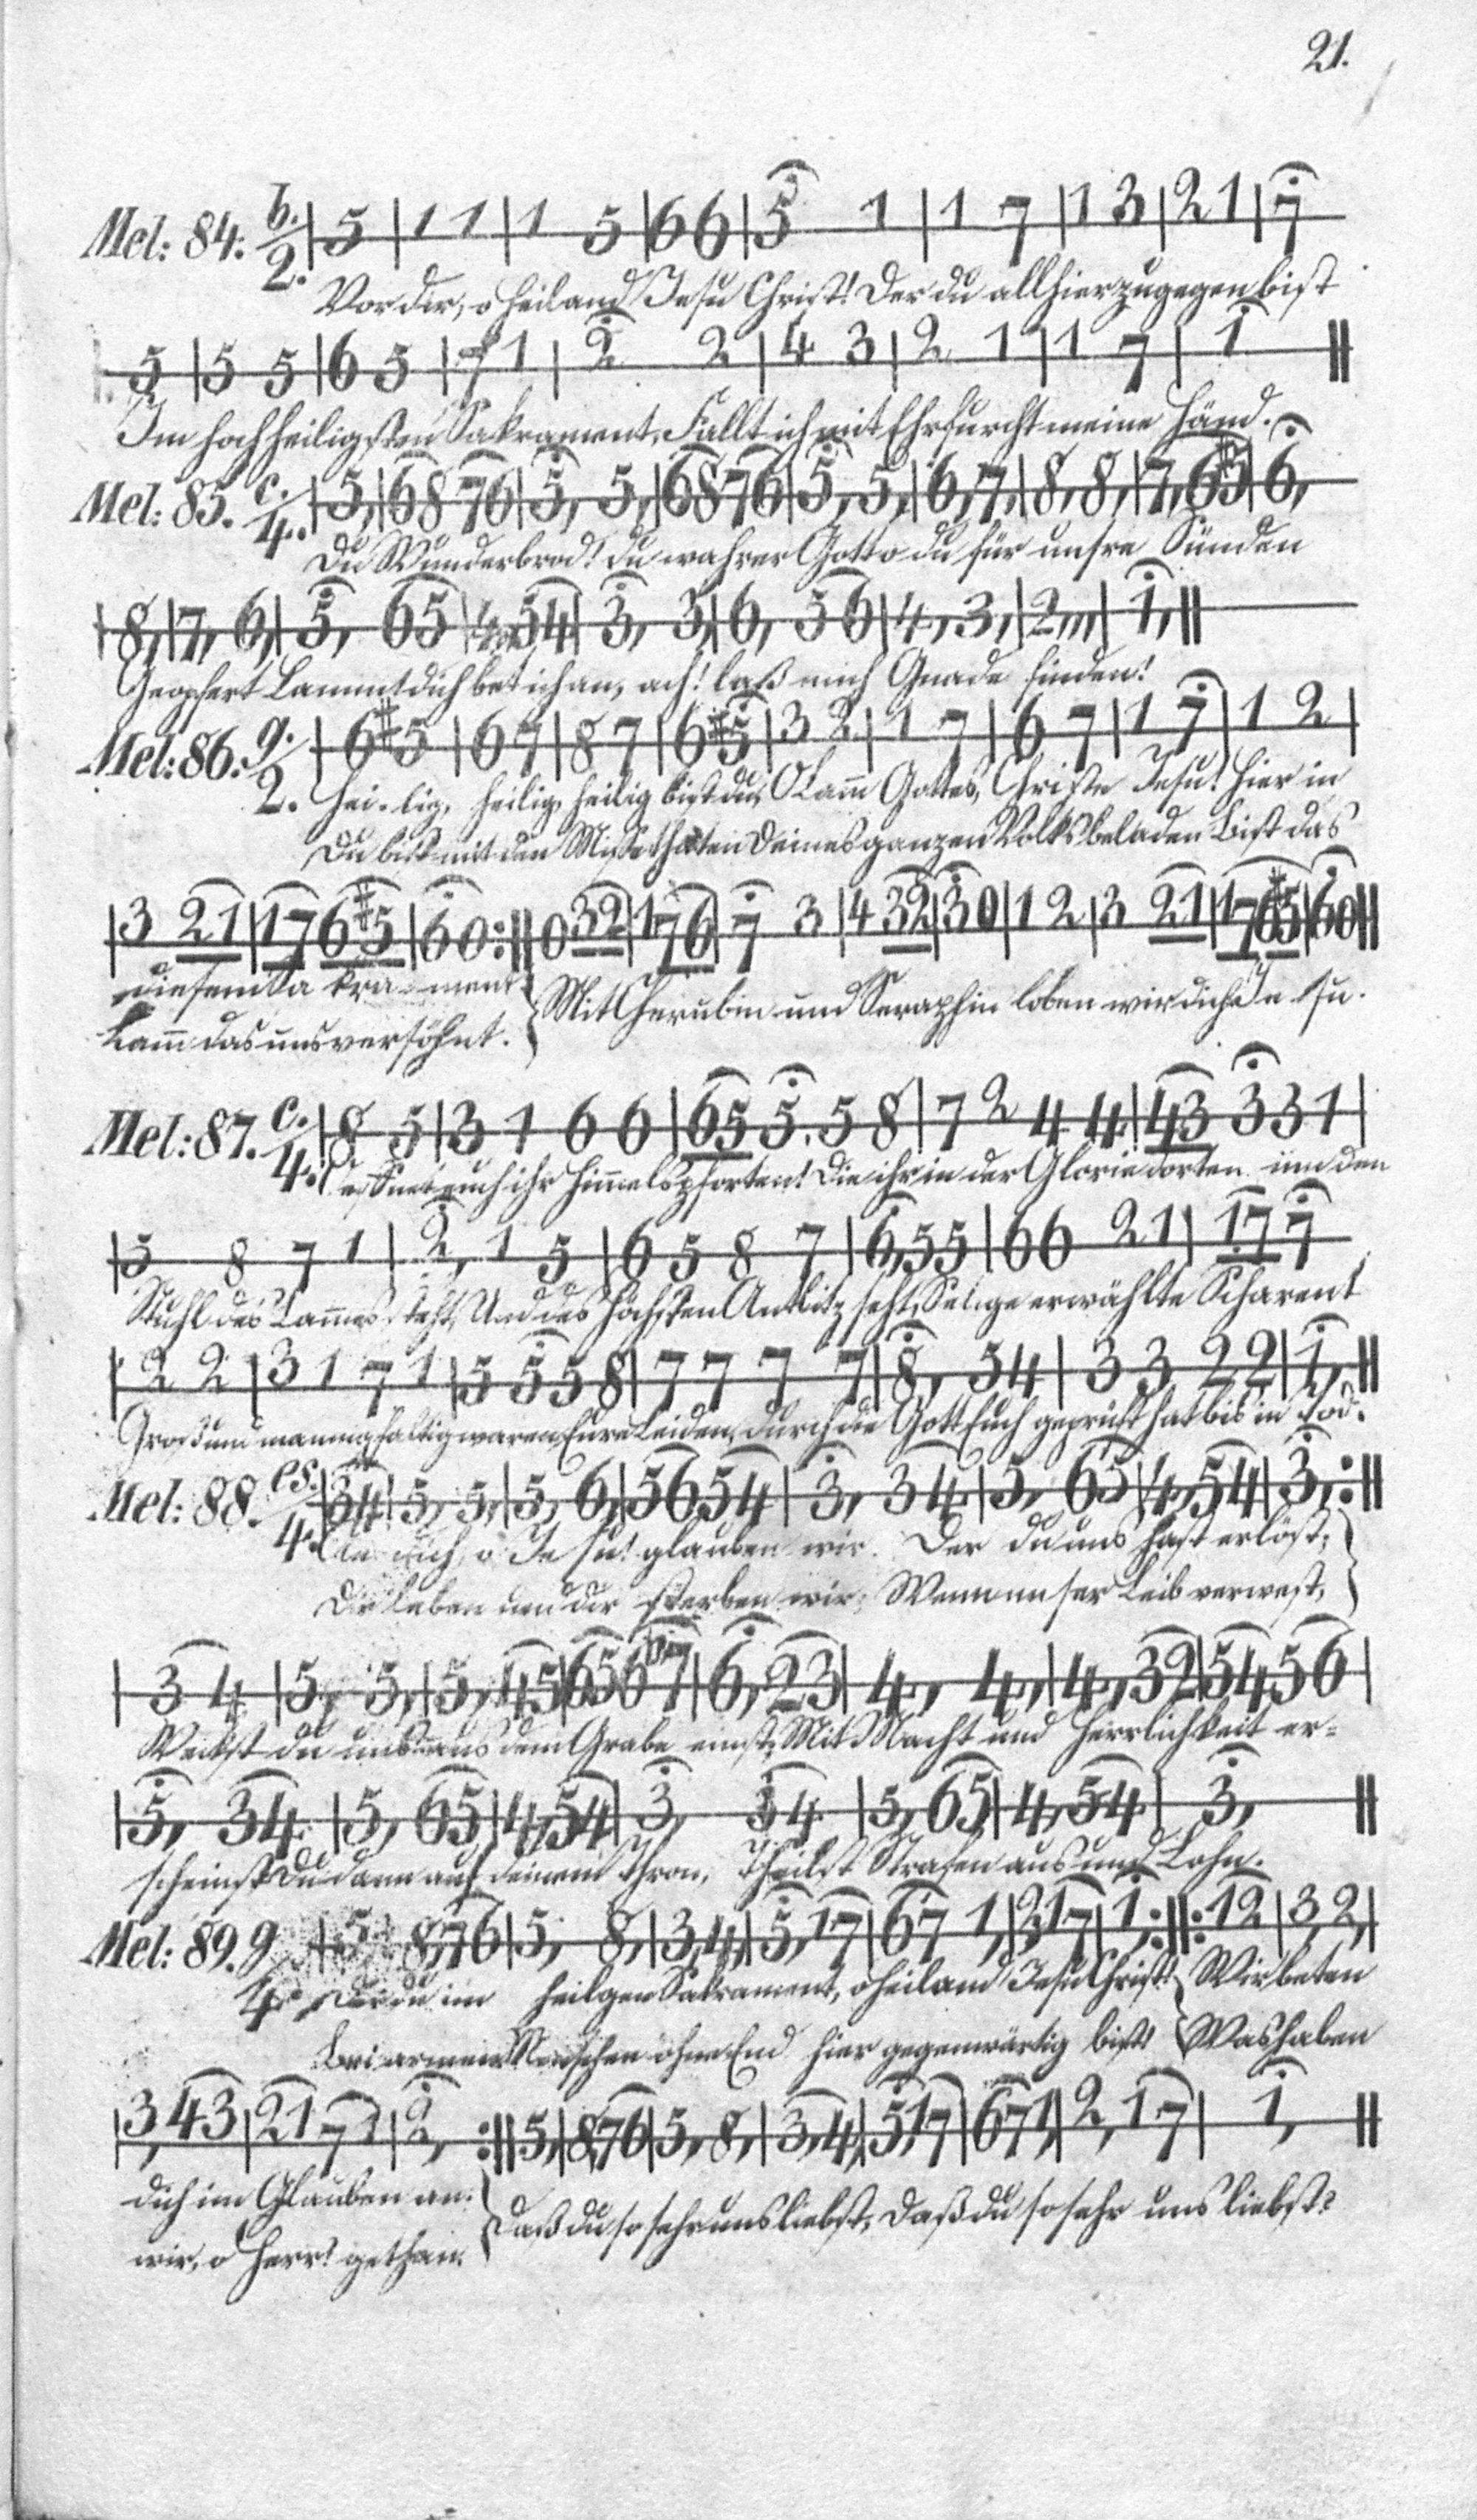 21.
Mel: 84. b. 2. | 5 | 1 1 | 1 5 | 6 6 | 5 1 | 1 7 | 1 3 | 2 1 | 7
Vor dir, o Heiland Jesu Christ! Der du allhier zugegen bist
5 | 5 5 | 6 5 | 7 1 | 2 2 | 4 3 | 2 1 | 1 7 | 1 ||
Im hochheiligsten Sakrament, Fallt ich mit Ehrfurcht meine Händ.
Mel: 85. c. 4. | 5, | 68 76 | 5, 5, | 68 76 | 5, 5, | 6, 7, | 8, 8, | 7, 6#5 | 6,
Du Wunderbrod! du wahrer Gott o du für unsre Sünden
8, | 7, 6, | 5, 65 | 4, 54 | 3, 3, | 6, 56 | 4, 3, | 2,,, | 1, ||
Geopfert Lamm! dich bet ich an, ach! laß mich Gnade finden!
Mel: 86. g. 2. | 6 #5 | 6 7 | 8 7 | 6 #5 | 3 2 | 1 7 | 6 7 | 1 7 | 1 2 |
Hei-lig, heilig, heilig bist du, O Lam̄ Gottes, Christe Jesu! hier in
Du bist mit den Missethaten Deines ganzen Volks beladen Bist das
| 3 21 | 17 6#5 | 6 0 :|| 0 32 | 176 | 7 3 | 4 32 | 3 0 | 1 2 | 3 21 | 17 6#5 | 6 0 ||
diesem Sa kra-ment
Mit Cherubin und Seraphin loben wir dich Je su.
Lam̄ das uns versöhnt.
Mel: 87. c. 4. | 8 5 | 3 1 6 6 | 65 5, 5 8 | 7 2 4 4 | 43 3 3 1 |
Oeffnet euch ihr Him̄elspforten! Die ihr in der Glorie dorten um den
| 5 8 7 1 | 2, 1 5 | 6 5 8 7 | 6, 5 5 | 6 6 2 1 | 17 7
Stuhl des Lam̄es steht, Und des Höchsten Antlitz seht, Selige erwählte Scharen!
| 2 2 | 3 1 7 1 | 5 5 5 8 | 7 7 7 7 | 8, 5 4 | 3 3 2 2 | 1, ||
Groß und mannigfaltig waren, Eure Leiden, durch die Gott Euch geprüft hat bis in Tod.
Mel: 88. es. 4. | 34 | 5, 5, | 5, 6, | 56 54 | 3, 34 | 5, 65 | 4, 54 | 3, :||
An dich, o Je su! glauben wir. Der du uns hast erlöst;
Dir leben und dir sterben wir; Wenn unser Leib verwest,
| 3 4 | 5, 5, | 5, 45 | 65 6 7 | 6, 23 | 4, 4, | 4, 32 | 54 56 |
Weckst du uns aus dem Grabe einst, Mit Macht und Herrlichkeit er-
| 5, 34 | 5, 65 | 4, 54 | 3, 34 | 5, 65 | 4, 54 | 3, ||
scheinst Du dann auf deinem Thron, Theilst Strafen aus und Lohn.
Mel: 89. g 4. | 5 | 8, 76 | 5, 8, | 3, 4, | 5, 17 | 67 1, | 2, 17 | 1, :||: 12 | 3, 2, |
Der du im heilgen Sakrament, o Heiland Jesu Christ! Wir beten
Bei armen Menschen ohne End hier gegenwärtig bist! Was haben
| 3, 43 | 21 71 | 2, :|| 5, | 8, 76 | 5, 8, | 3, 4, | 5, 17 | 67 1, | 2, 17 | 1, ||
dich im Glauben an.
Daß du so sehr uns liebst, Daß du so sehr uns liebst?
wir, o Herr! gethan.